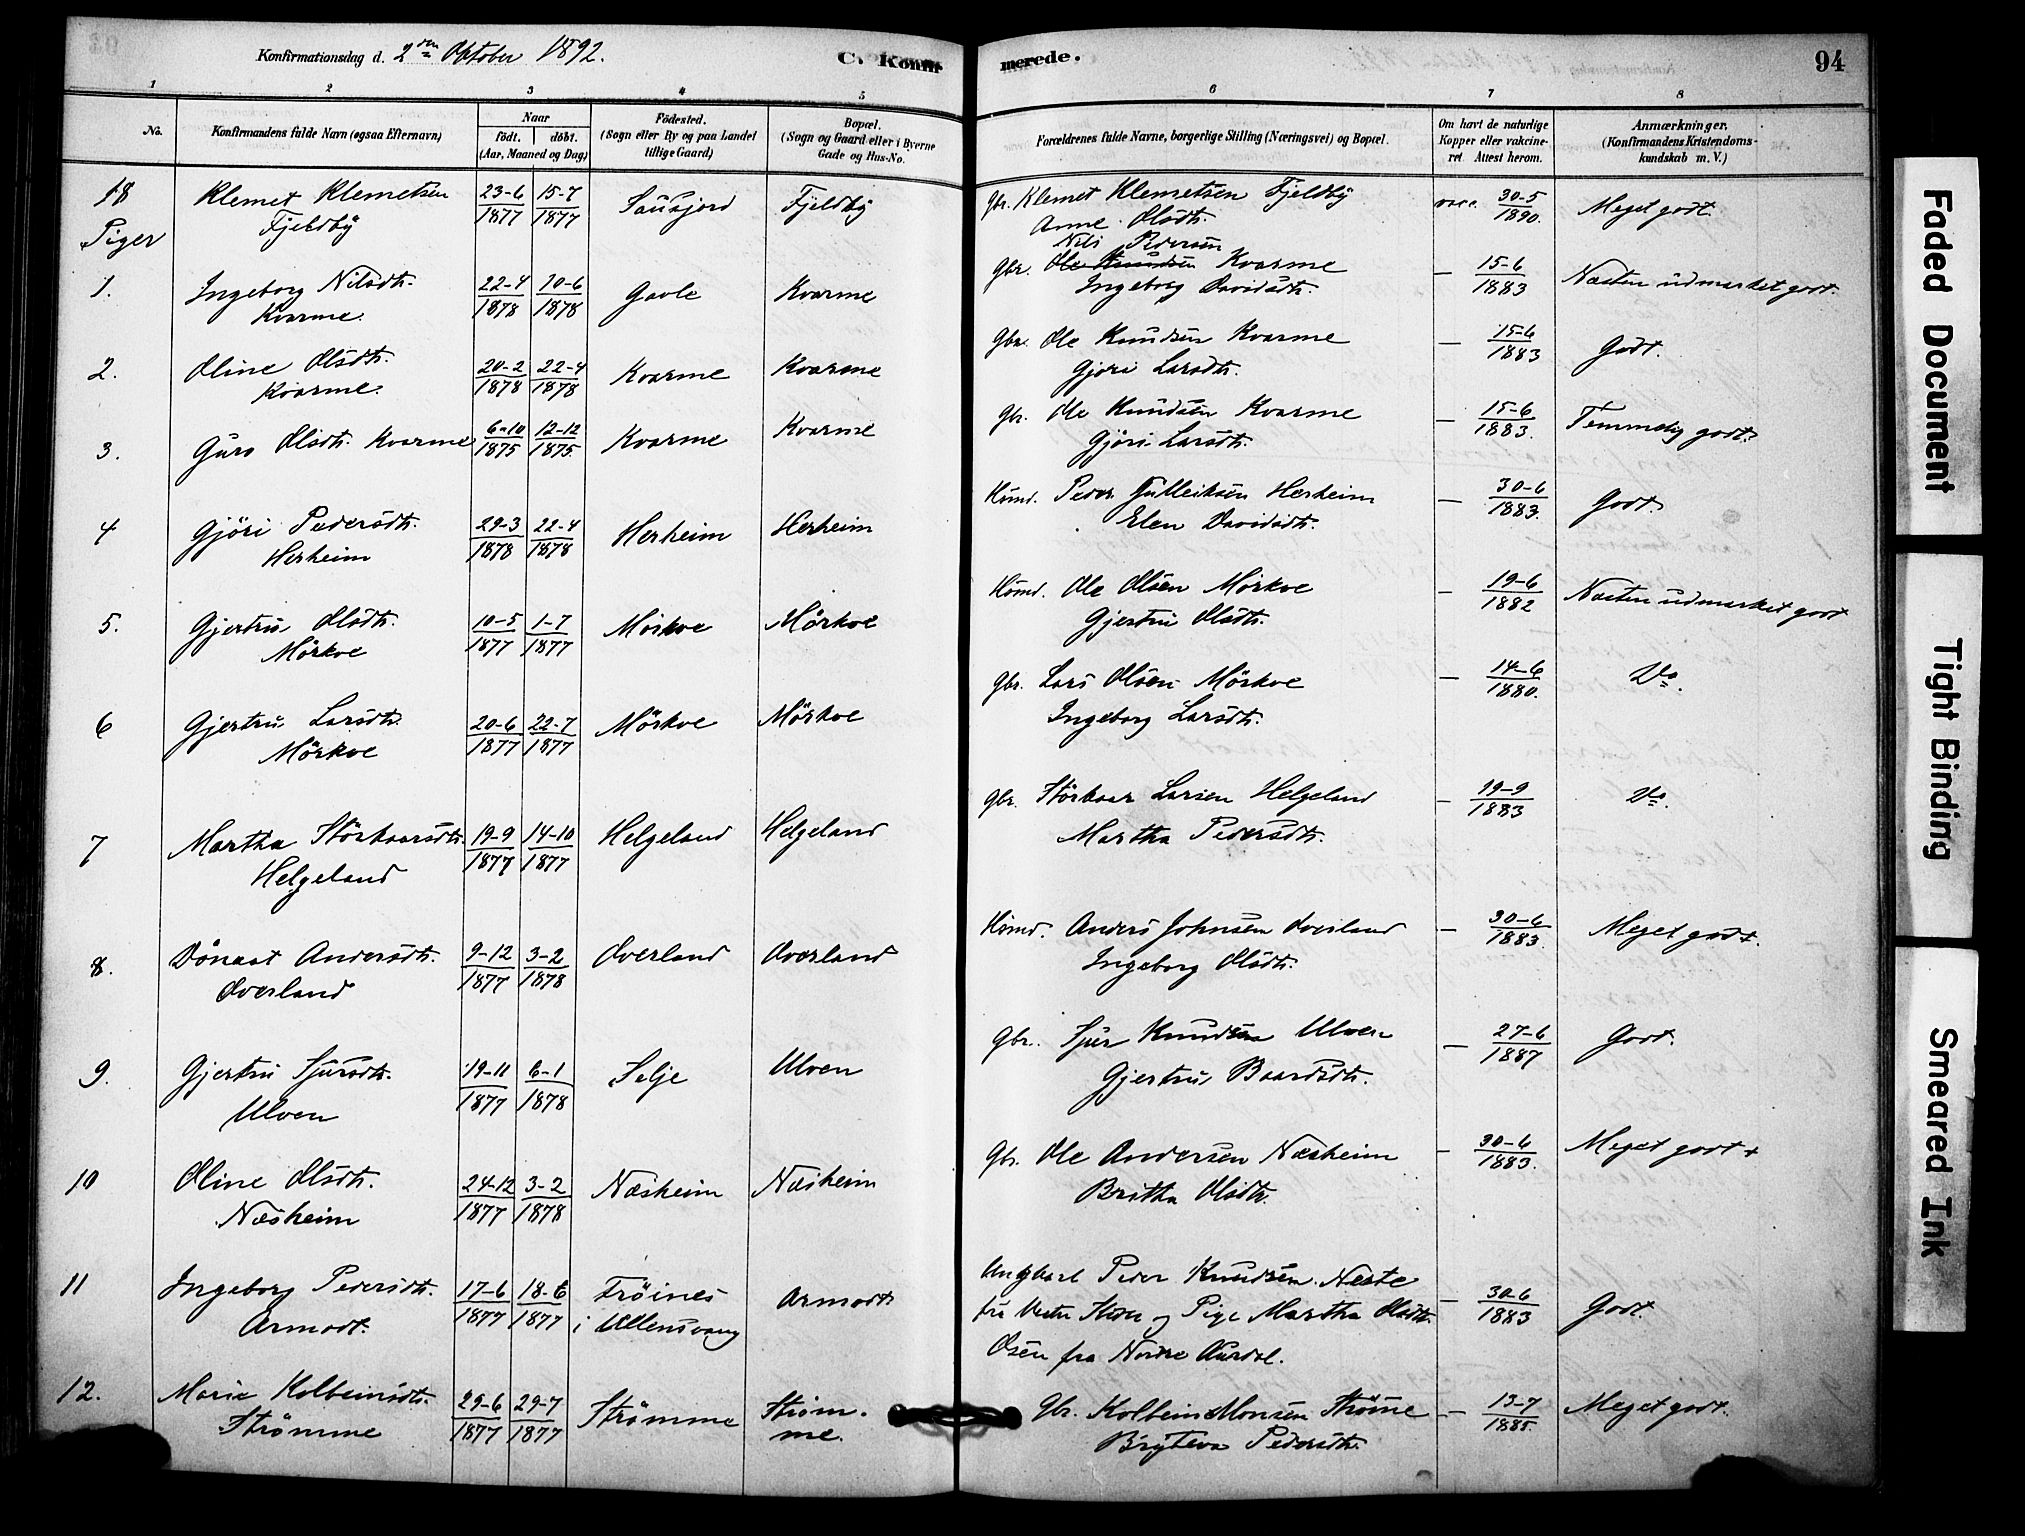 Konfirmationsdag d. 2den Oktober 1892.
C. Konfirmerede.
94
1 2 3 4 5 6 7 8
No.
Konfirmandens fulde Navn (ogsaa Efternavn)
Naar
født. døbt.
(Aar, Maaned og Dag)
Fødested.
(Sogn eller By og paa Landet
tillige Gaard)
Bopæl.
(Sogn og Gaard eller i Byerne
Gade og Hus-No.
Forældrenes fulde Navne, borgerlige Stilling (Næringsvei) og Bopæl.
Om havt de naturlige
Kopper eller vakcine-
ret. Attest herom.
Anmærkninger.
(Konfirmandens Kristendoms-
kundskab m. V.)
18 Klemet Klemetsen 23-6 1877 15-7 1877 Fjeldby Gbr. Klemet Klemetsen Fjeldby vacc. 30-5 1890. Meget godt.
Fjeldby Anne Olsdtr.
Piger
Nils Pedersen
1. Ingeborg Nilsdtr. 22-4 1878 10-6 1878 Gavle Kvarme Gbr. Ole Knudsen Kvarme — 15-6 1883 Næsten udmærket godt.
Kvarme. Ingeborg Davidsdtr.
2. Oline Olsdtr. 20-2 1878 22-4 1878 Kvarme Kvarme Gbr. Ole Knudsen Kvarme — 15-6 1883 Godt.
Kvarme. Gjøri Larsdtr.
3. Guro Olsdtr. Kvarme 6-10 1875 12-12 1875. Kvarme Kvarme Gbr. Ole Knudsen Kvarme — 15-6 1883. Temmelig godt.
Gjøri Larsdtr.
4 Gjöri Pedersdtr. 29-3 1878 22-4 1878 Herheim Herheim Húmd. Peder Gulleiksen Herheim — 30-6 1883. Godt
Herheim Elen Davidsdtr.
5. Gjertru Olsdtr. 10-5 1877 1-7 1877 Mörkve Mörkve Húmd. Ole Olsen Mörkve — 19-6 1882 Næsten udmærket godt
Mörkve Gjertru Olsdtr.
6 Gjertru Larsdtr. 20-6 1877 22-7 1877 Mörkve Mörkve Gbr. Lars Olsen Mörkve — 14-6 1880. Do.
Mörkve Ingeborg Larsdtr.
7 Martha Störkaarsdtr. 19-9 1877 14-10 1877 Helgeland Helgeland Gbr. Störkaar Larsen Helgeland — 19-9 1883 Do.
Helgeland Martha Pedersdtr.
8. Dönaat Andersdtr. 9-12 1877 3-2 1878 Overland Overland Húmd. Anders Johnsen Overland — 30-6 1883. Meget godt.
Overland Ingeborg Olsdtr.
9. Gjertru Sjursdtr. 19-11 1877 6-1 1878 Selje Ulven Gbr. Sjur Knudsen Ulven — 27-6 1887 Godt.
Ulven Gjertru Baardsdtr.
10 Oline Olsdtr. 24-12 1877 3-2 1878 Næsheim Næsheim Gbr. Ole Andersen Næsheim — 30-6 1883. Meget godt
Næsheim Britha Olsdtr.
11 Ingeborg Pedersdtr. 17-6 1877 18-6 1877 Tröines Armodt Ungkarl Peder Knudsen Neste — 30-6 1883 Godt.
Armodt. i Ullensvang og Pige Martha Olsdtr.
Osen fra Nordre Aurdal.
12. Marie Kolbeinsdtr. 29-6 1877 29-7 1877 Strömme Ström- Gbr. Kolbein Monsen Ströme — 13-7 1885. Meget godt.
Strömme me. Bryteva Pedersdtr.
Faded Document
Tight Binding
Smeared Ink